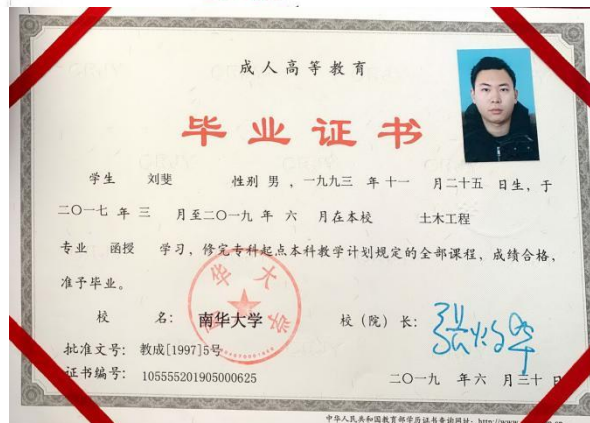 成人高等教育
毕业证书
学生 刘斐 性别 男 ，一九九三 年 十一 月二十五 日生，于
二〇一七 年 三 月至二〇一九 年 六 月在本校 土木工程
专业 函授 学习，修完专科起点本科教学计划规定的全部课程，成绩合格，
准予毕业。
校 名： 南华大学 校（院）长：
批准文号： 教成[1997]5号
证书编号： 105555201905000625
二〇一九 年六 月三十 日
中华人民共和国教育部学历证书查询网址：http://www.